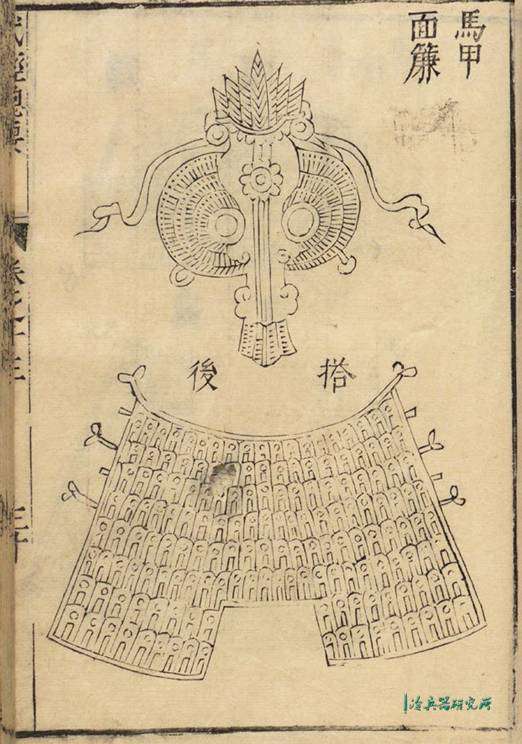 馬甲
面簾
搭後
武經總要
卷之十三
冷兵器研究所